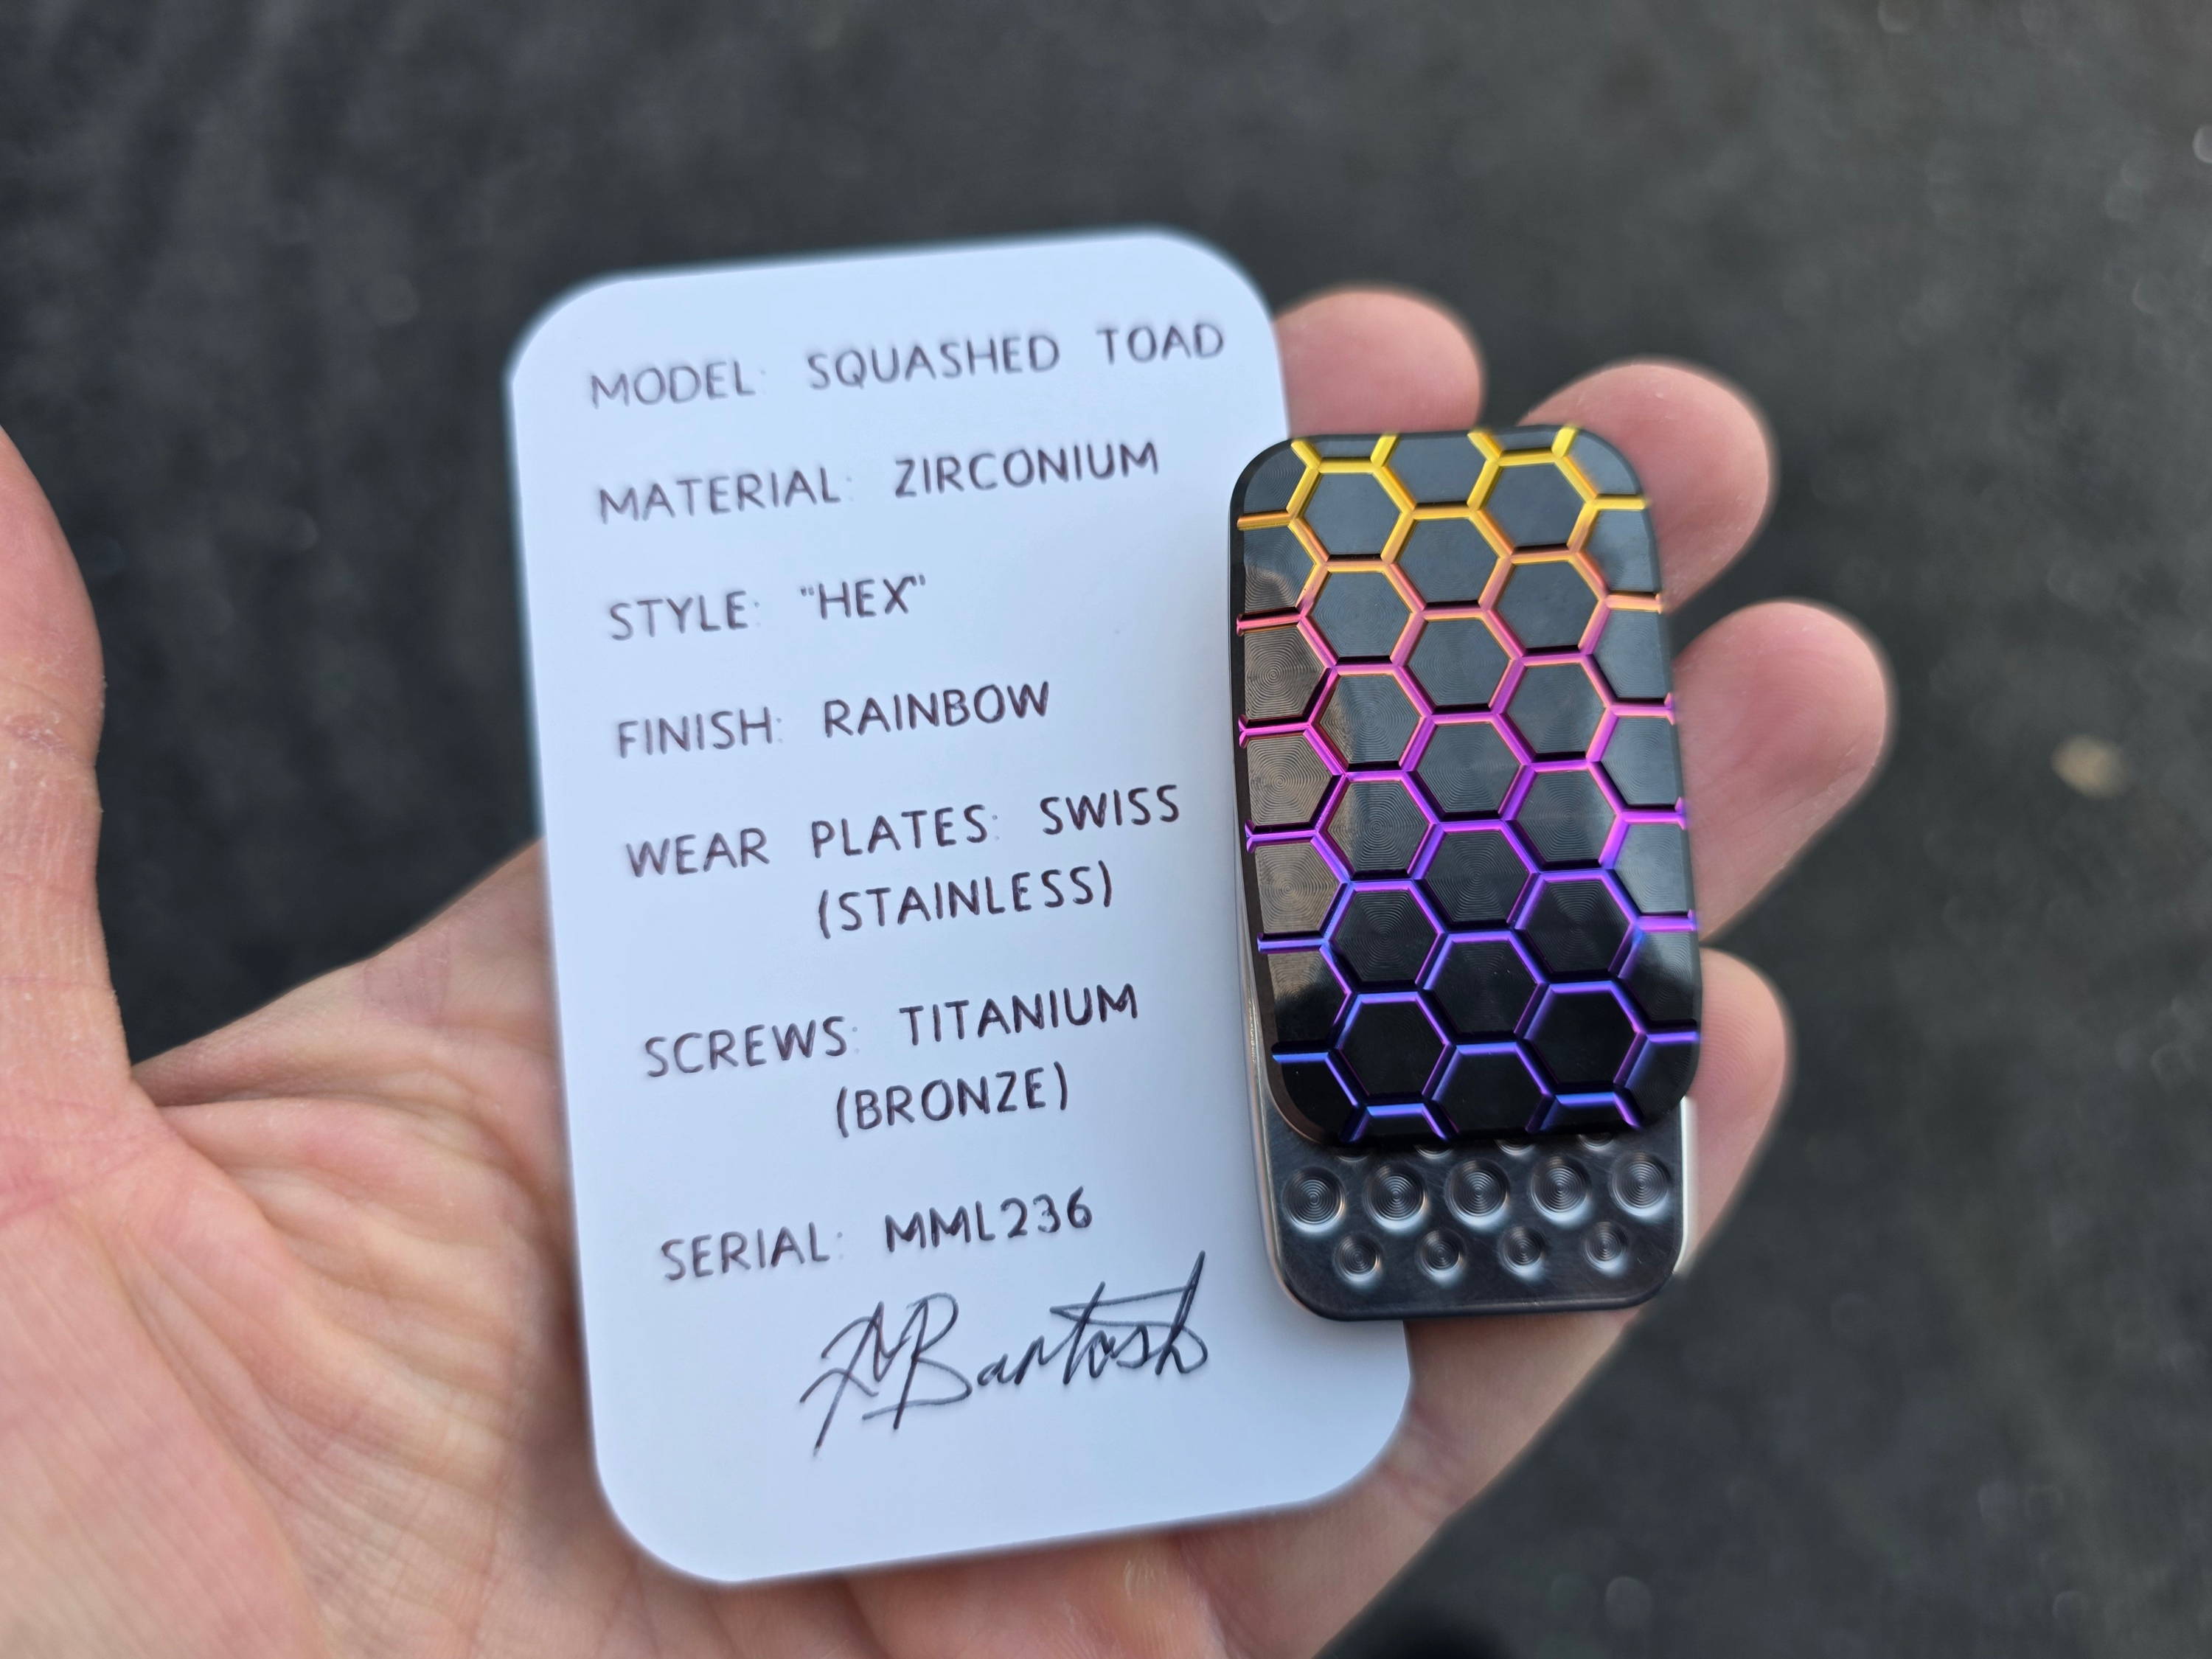 MODEL: SQUASHED TOAD
MATERIAL: ZIRCONIUM
STYLE: "HEX"
FINISH: RAINBOW
WEAR PLATES: SWISS
(STAINLESS)
SCREWS: TITANIUM
(BRONZE)
SERIAL: MML236